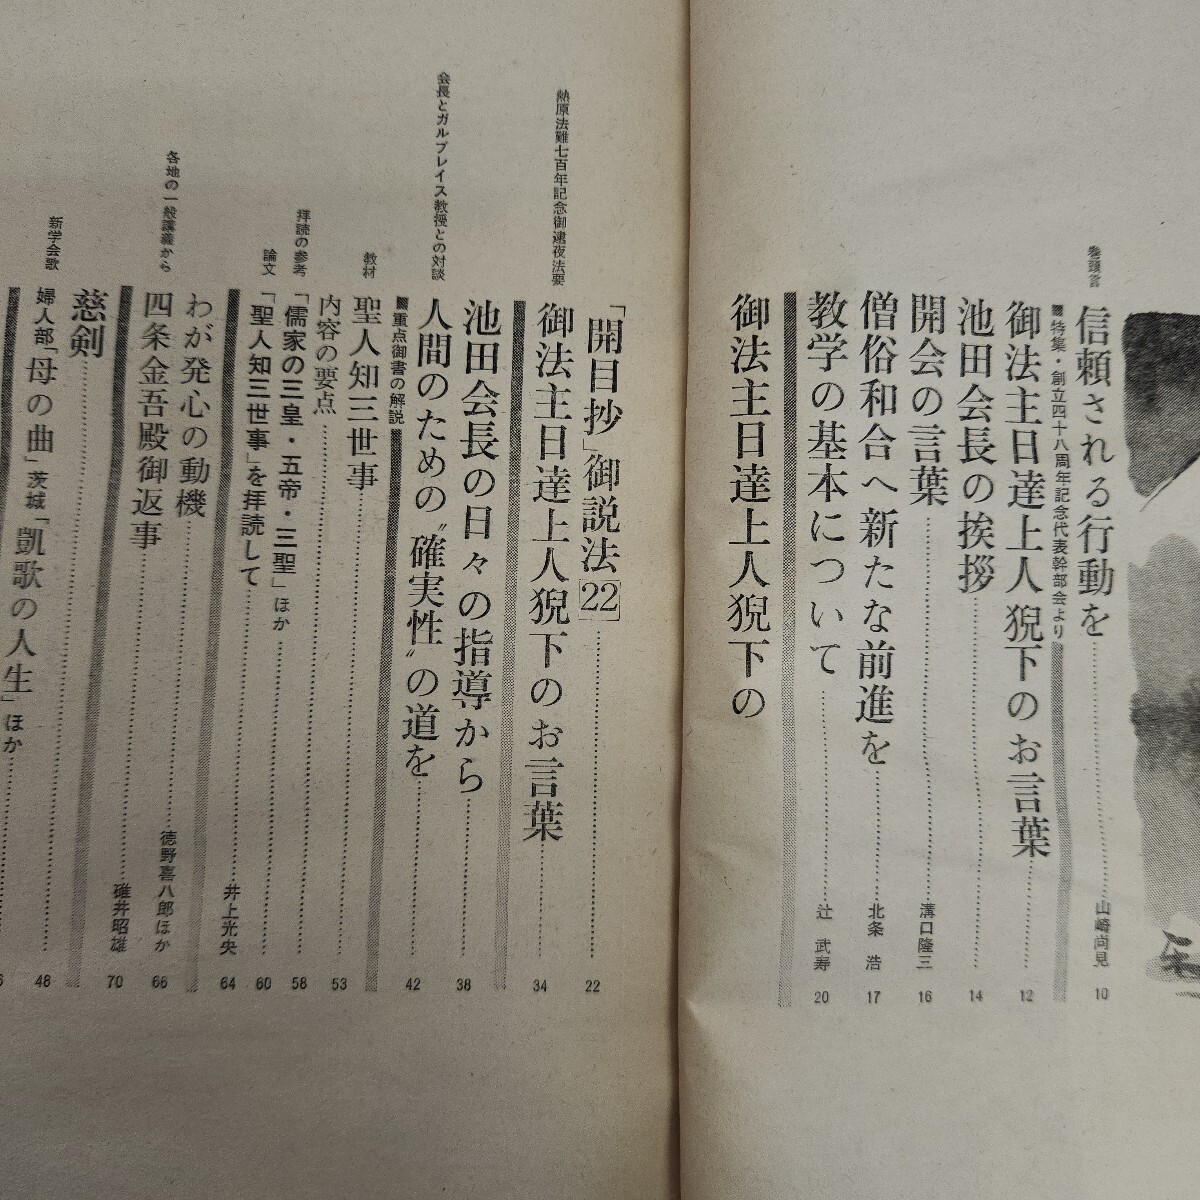 巻頭言
信頼される行動を 山崎尚見 10
■特集・創立四十八周年記念代表幹部会より
御法主日達上人猊下のお言葉 12
池田会長の挨拶 14
開会の言葉 溝口隆三 16
僧俗和合へ新たな前進を 北条 浩 17
教学の基本について 辻 武寿 20
御法主日達上人猊下の
「開目抄」御説法[22] 22
熱原法難七百年記念御逮夜法要
御法主日達上人猊下のお言葉 34
池田会長の日々の指導から 38
会長とガルブレイス教授との対談
人間のための〝確実性〟の道を 42
■重点御書の解説
教材
聖人知三世事
内容の要点 53
拝読の参考
「儒家の三皇・五帝・三聖」ほか 58
論文
「聖人知三世事」を拝読して 60
井上光央 64
わが発心の動機 徳野喜八郎ほか 66
各地の一般講義から
四条金吾殿御返事 碓井昭雄 70
慈剣 48
新学会歌
婦人部「母の曲」茨城「凱歌の人生」ほか